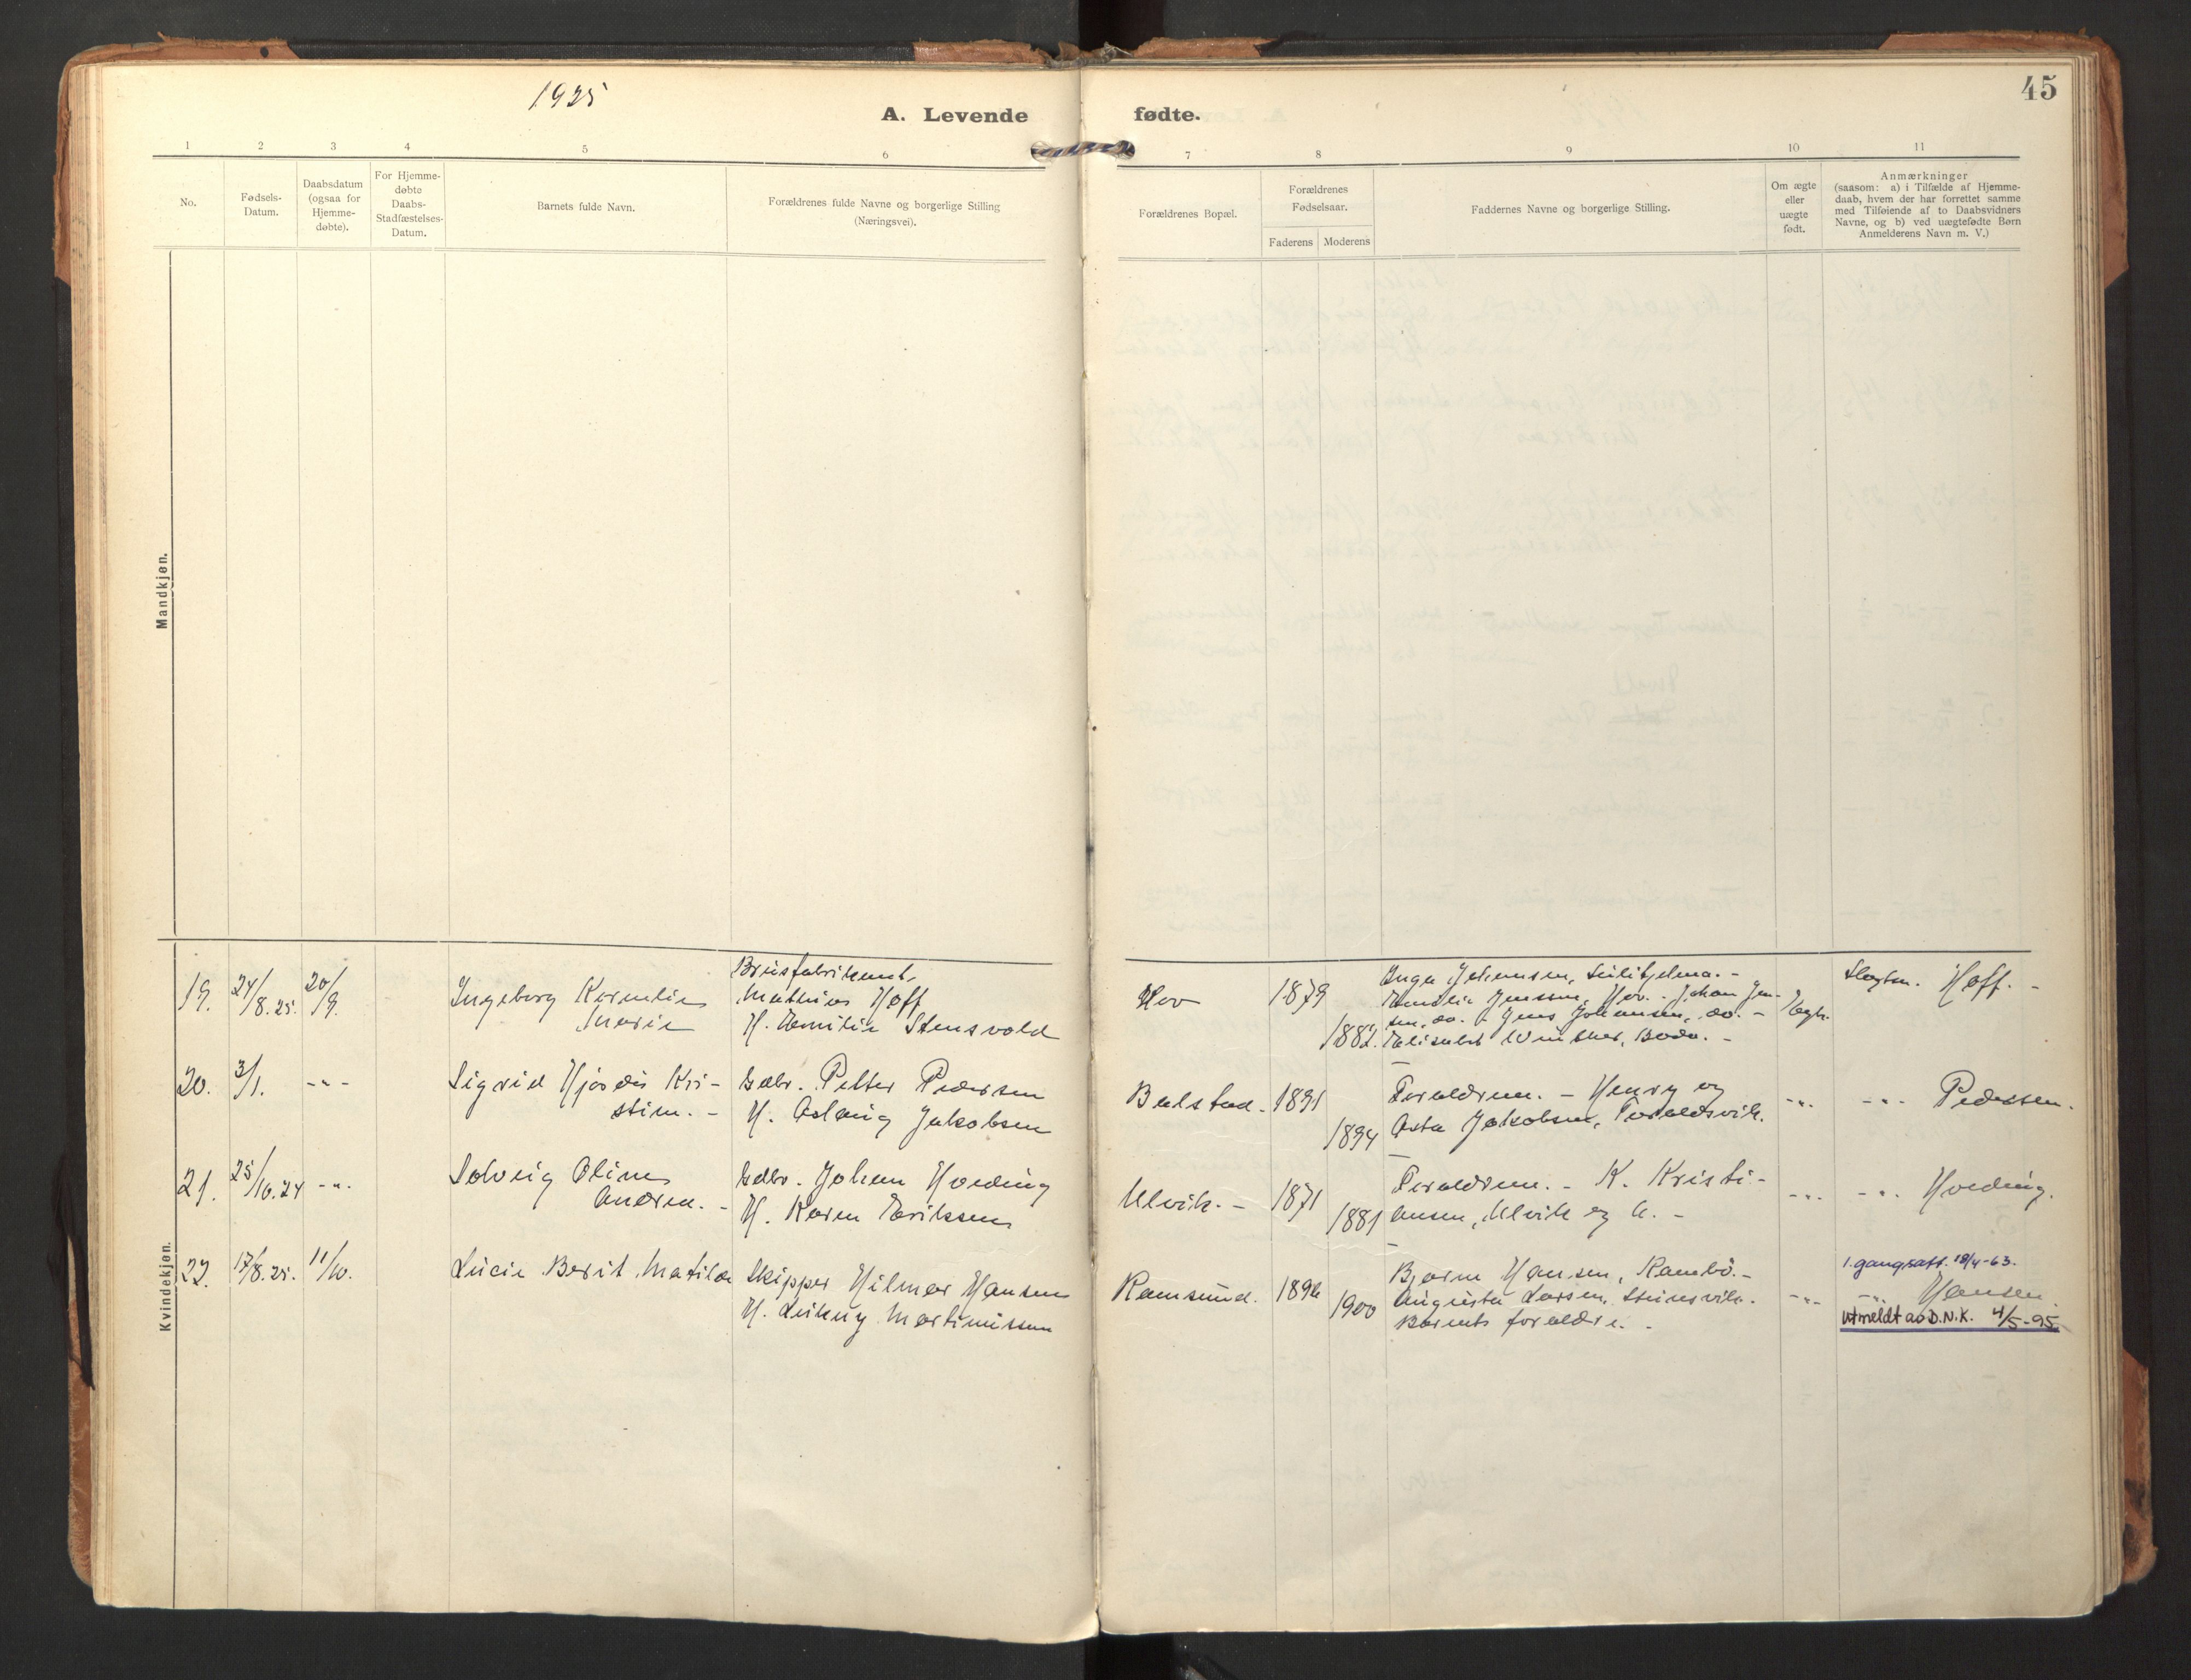 1925
45
A. Levende fødte.
1 2 3 4 5 6 7 8 9 10 11
No.
Fødsels-
Datum.
Daabsdatum
(ogsaa for
Hjemme-
døbte).
For Hjemme-
døbte
Daabs-
Stadfæstelses-
Datum.
Barnets fulde Navn.
Forældrenes fulde Navne og borgerlige Stilling
(Næringsvei).
Forældrenes Bopæl.
Forældrenes
Fødselsaar.
Faderens Moderens
Faddernes Navne og borgerlige Stilling.
Om ægte
eller
uægte
født.
Anmærkninger
(saasom: a) i Tilfælde af Hjemme-
daab, hvem der har forrettet samme
med Tilføiende af to Daabsvidners
Navne, og b) ved uægtefødte Børn
Anmelderens Navn m. V.)
Mandkjøn.
Kvindekjøn.
19. 24/8.25. 20/9.
Ingeborg Kornelie
Marie
Brusfabrikant
Mathias Hoff
H. Emilie Stensvold
Hov
1879
1882.
Inga Johansen, Sulitjelma. -
Emelie Jenssen, Hov. - Johan Jen-
sen, do. - Jens Johansen, do. -
Elisabet Winther, Bodø. -
Ægte.
Hoff. -
20. 3/1. -"-
Sigrid Hjørdis Kri-
stine. -
Gdbr. Petter Pedersen
H. Aslaug Jakobsen
Balstad. -
1891
1894
Forældrene. - Henry og
Asta Jakobsen, Toraldsvik.
-"- -"- Pedersen.
21. 25/10.24 -"-
Solveig Oline
Andrea. -
Gdbr. Johan Hveding
H. Karen Eriksen
Ulvik. -
1871
1881
Forældrene. - K. Kristi-
ansen, Ulvik og h. -
-"- -"- Hveding.
22. 17/8.25. 11/10.
Lucie Berit Matilde
Skipper Hilmar Hansen
H. Martinussen
Ramsund.
1896
1900
Bjarne Hansen, Rambø. -
Augusta Larsen, Steinsvik. -
Barnets forældre. -
-"- -"- Hansen.
1.gangsatt. 18/4-63.
utmeldt av D.N.K. 4/5-95